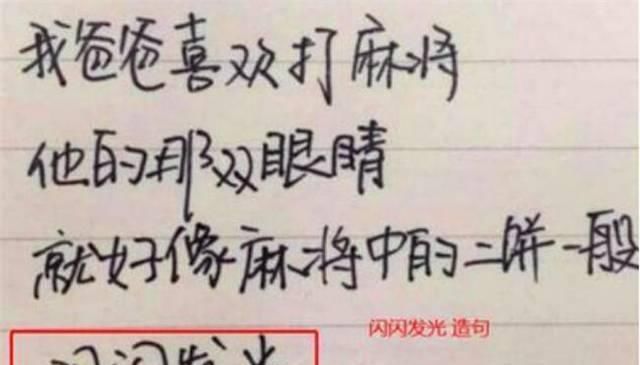 我爸爸喜欢打麻将
他的那双眼睛
就好像麻将中的二饼一般
闪闪发光 造句
闪闪发光